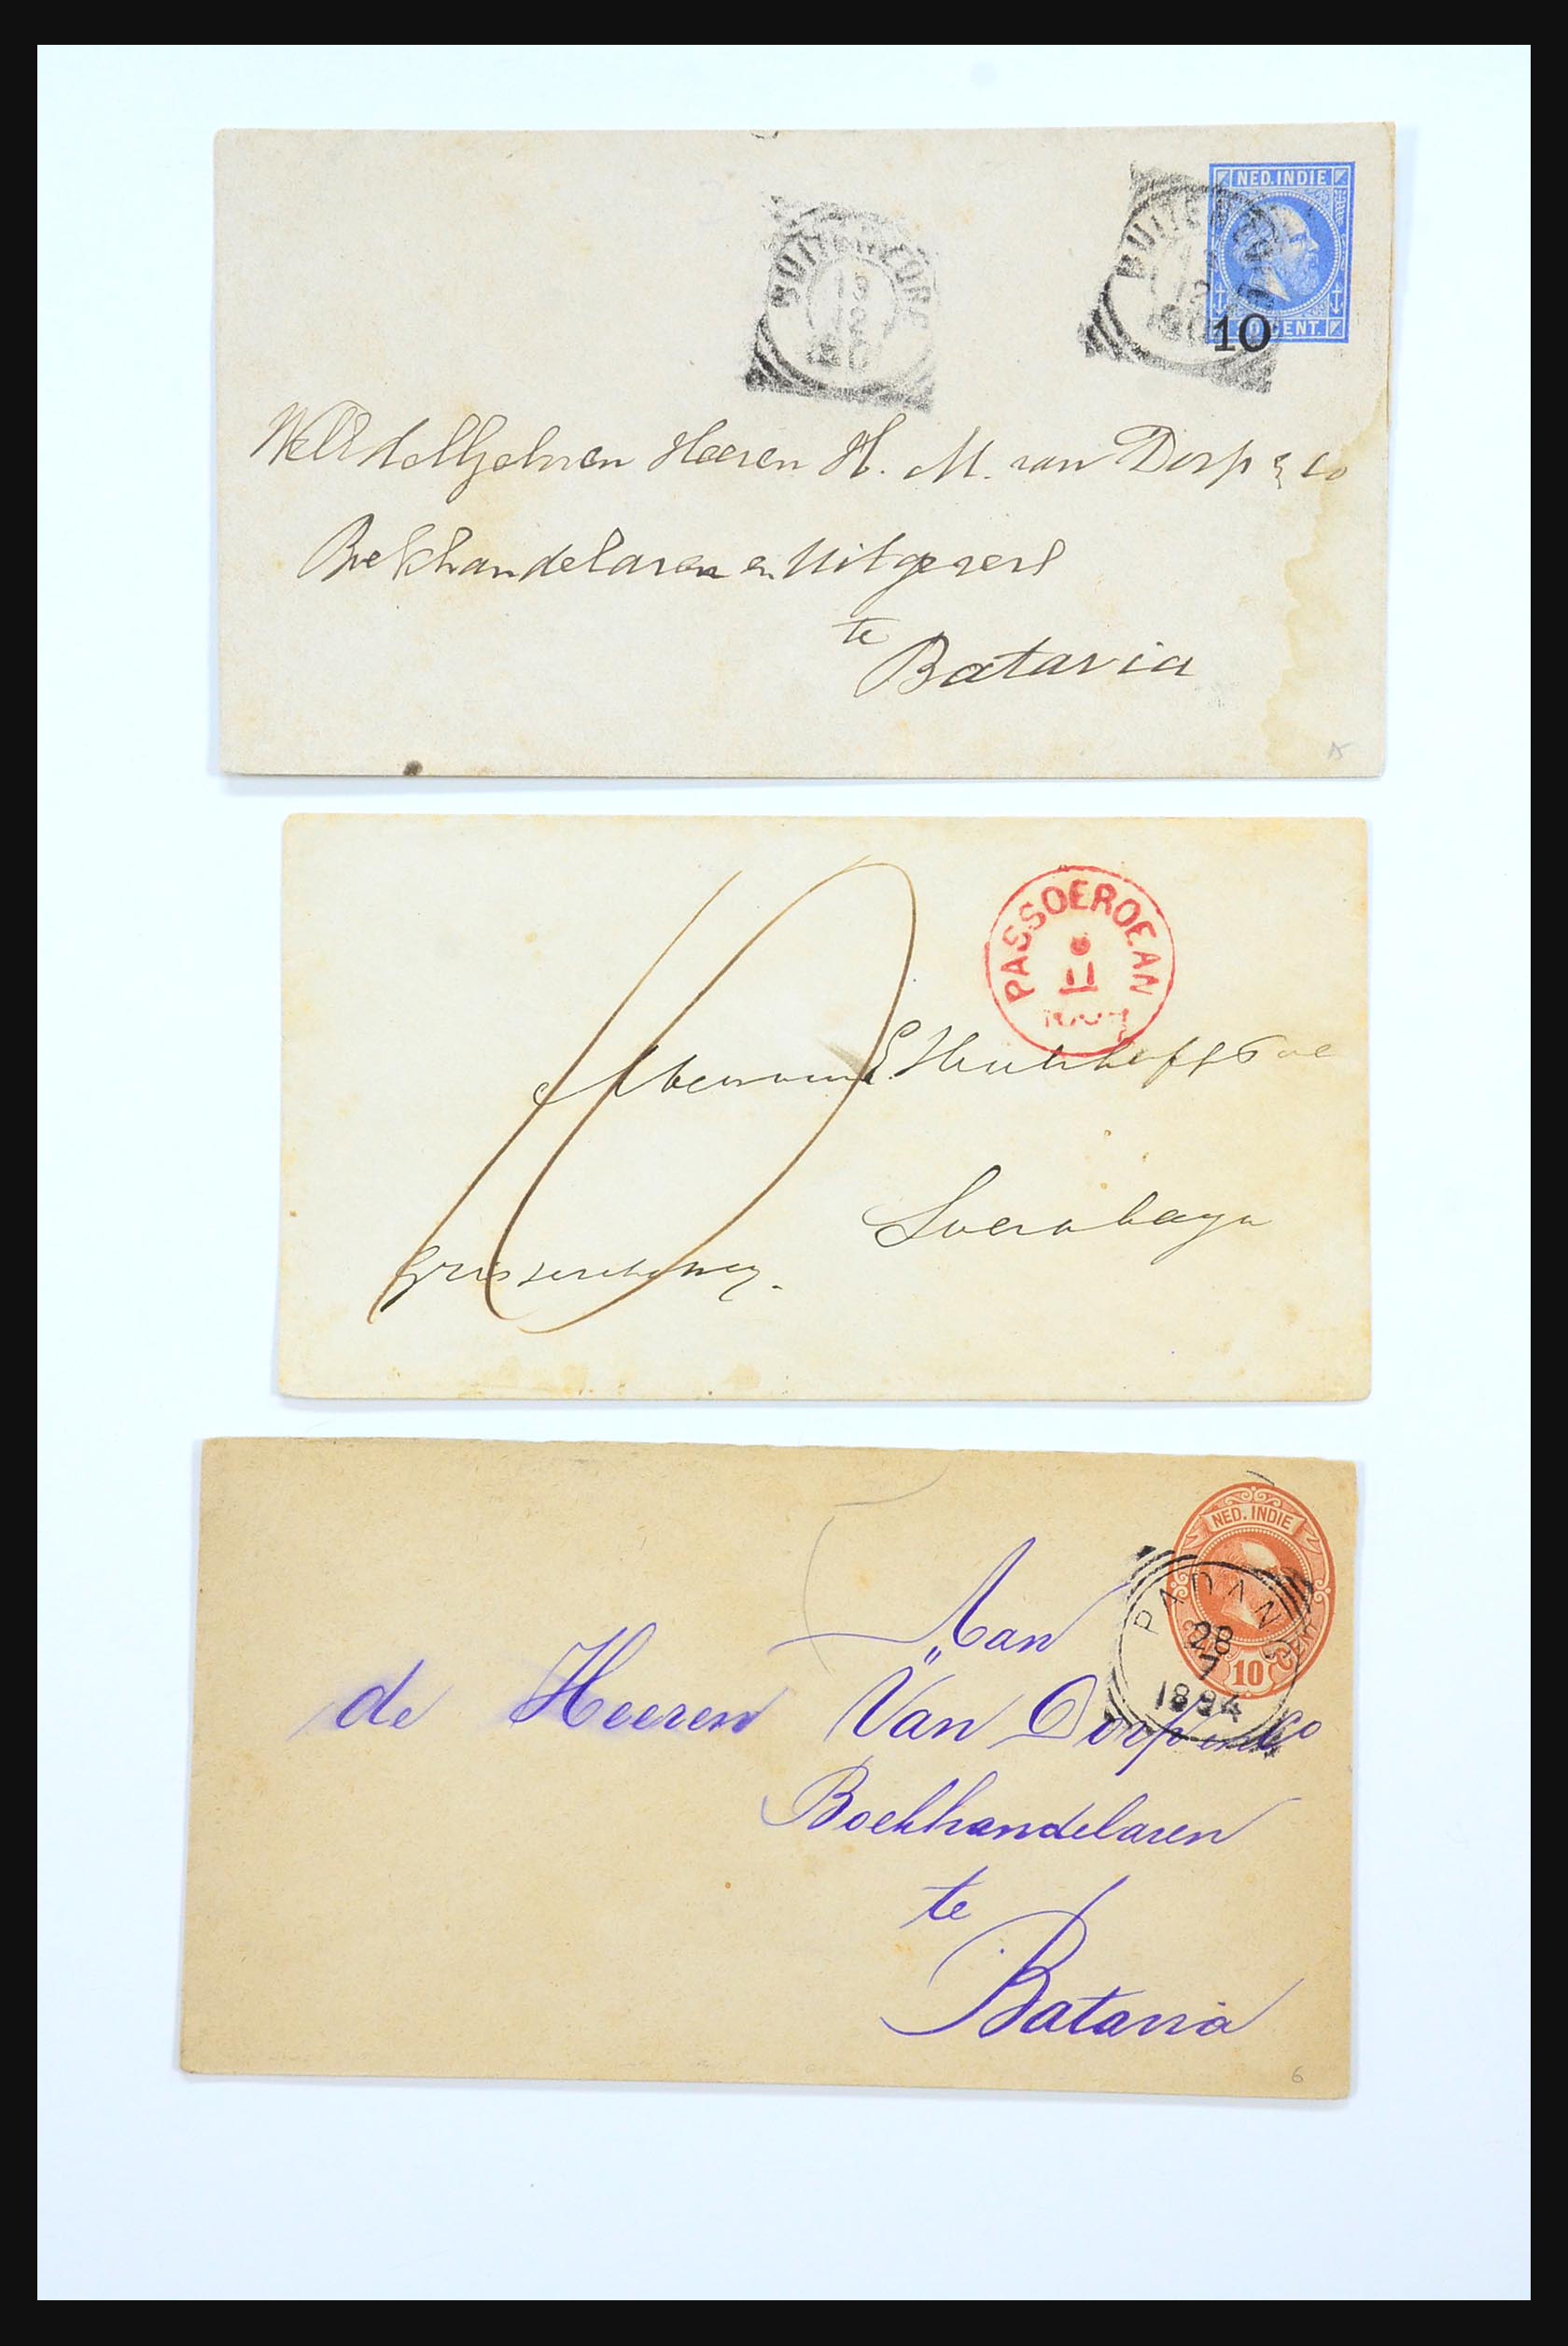 NED. INDIE
CENT.
10
BUITENZORG
13
12
WelEdelGeboren Heeren H. M. van Dorp & Co
Boekhandelaren en Uitgevers
te
Batavia
PASSOEROEAN
11
10
Mevrouw
Soerabaya
NED. INDIE
10
CENT
PADANG
28
7
1894
Aan
de Heeren Van Dorp en Co
Boekhandelaren
te
Batavia
6